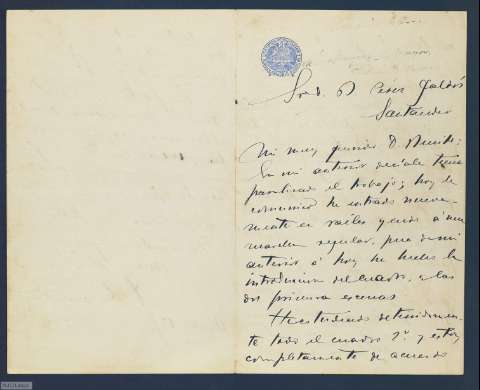 Sr. D. B Perez Galdós
Santander
Mi muy querido D. Benito:
En mi anterior decíale tenía
paralizado el trabajo; hoy le
comunico he entrado nueva-
mente en railes yendo á una
marcha regular, pues de mi
anterior á hoy he hecho la
introduccion del cuadro, y las
dos primeras escenas
He estudiado detenidamen-
te todo el cuadro 2º y estoy
completamente de acuerdo